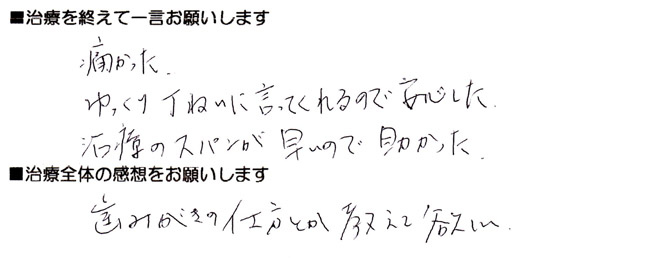 ■治療を終えて一言お願いします
痛かった.
ゆっくり丁ねいに言ってくれるので安心した.
治療のスパンが早いので助かった.
■治療全体の感想をお願いします
歯みがきの仕方とか教えて欲しい.